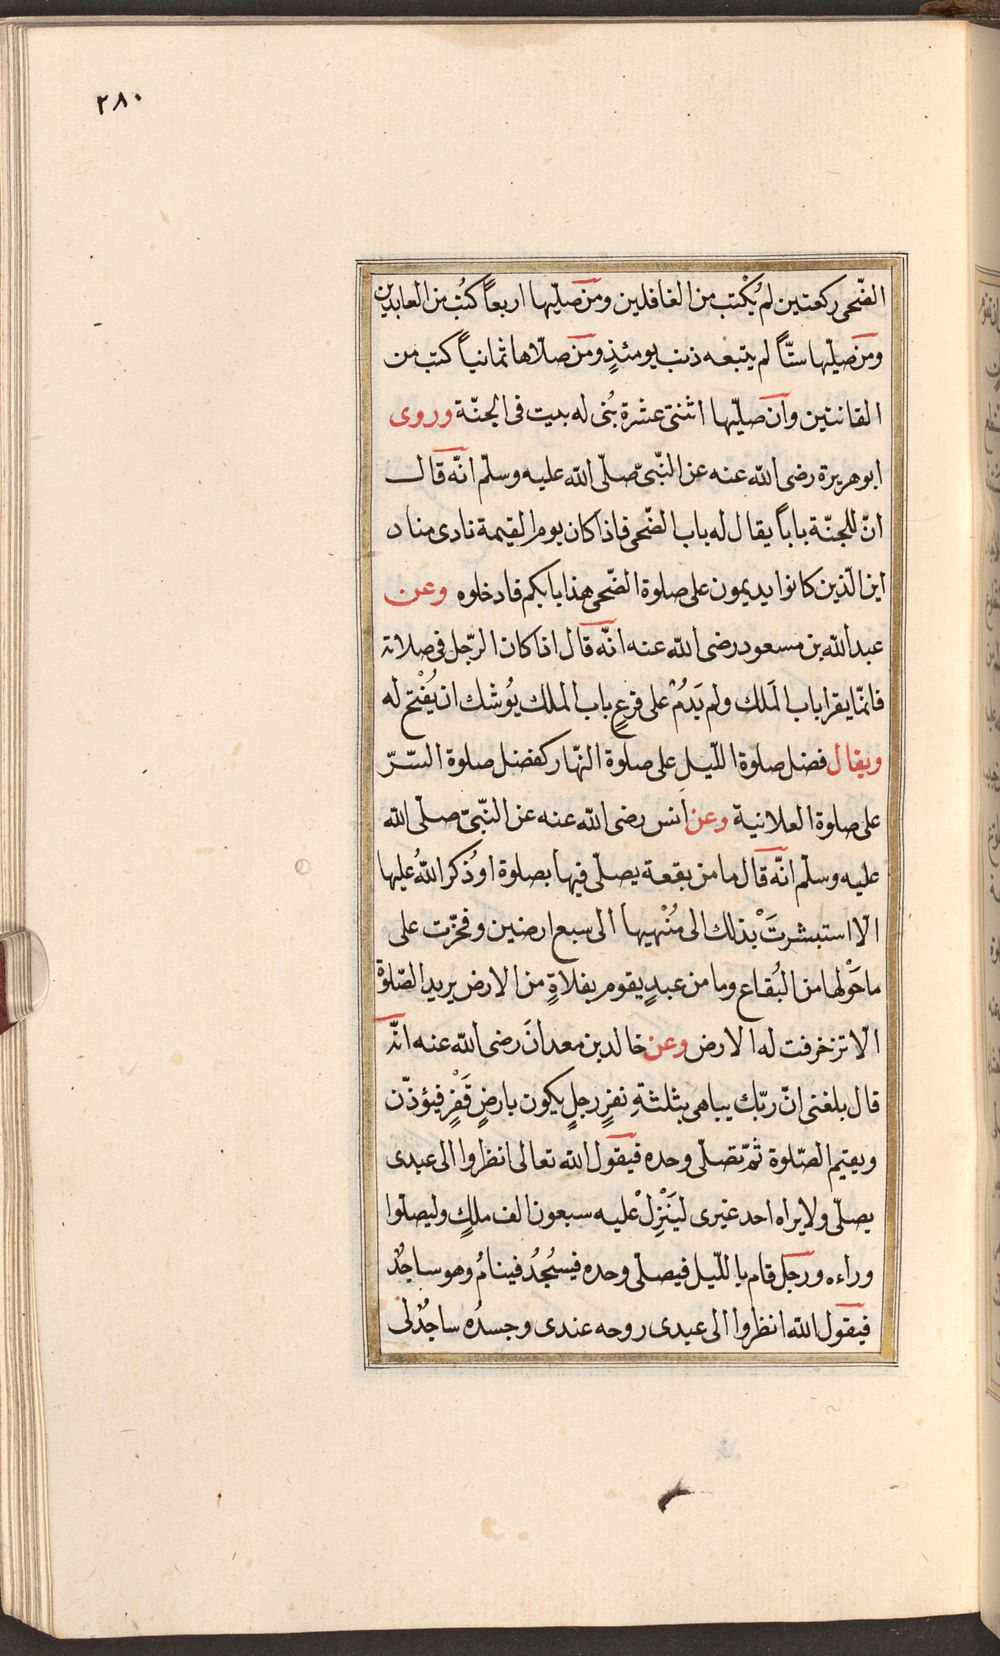 ٢٨٠
الضّحى ركعتين لم يُكْتب من الغافلين ومن صلّيها اربعاً كُتب من العابدين
ومن صلّيها ستّاً لم يتبعه ذنب يومئذٍ ومن صلّاها ثمانياً كتب من
القانتين وان صلّيها اثنتى عشرة بُنى له بيت فى الجنّة وروى
ابوهريرة رضى الله عنه عن النّبىّ صلّى الله عليه وسلّم انّه قال
انّ للجنّة باباً يقال له باب الضّحى فاذا كان يوم القيمة نادى مناد
اين الّذين كانوا يديمون على صلوة الضّحى هذا بابكم فادخلوه وعن
عبد الله بن مسعود رضى الله عنه انّه قال اذا كان الرّجل فى صلاته
فانّما يقرا باب الملك ولم يَدُمْ على قرعٍ باب الملك يُوشك ان يُفْتح له
ويقال فضل صلوة اللّيل على صلوة النّهار كفضل صلوة السّرّ
على صلوة العلانية وعن انس رضى الله عنه عن النّبىّ صلّى الله
عليه وسلّم انّه قال ما من بقعة يصلّى فيها بصلوة او ذُكر اللهُ عليها
الّا استبشرتَْ بذلك الى مُنْهيها الى سبع ارضين وفخّرت على
ما حَوْلها من البُقاع وما من عبدٍ يقوم بفلاةٍ من الارض يريد الصّلوة
الّا تزخرفت له الارض وعن خالد بن معدانَ رضى الله عنه انّه
قال بلغنى انّ ربّك يباهى بثلثةِ نفرٍ رجلٍ يكون بارضٍ قَفْرٍ فيؤذّن
ويقيم الصّلوة ثمّ تصلّى وحده فيقول الله تعالى انظروا الى عبدى
يصلّى ولا يراه احد غيرى لِيَنْزِلْ عليه سبعون الف ملكٍ وليصلّوا
وراءه ورجل قام باللّيل فيصلّى وحده فيسْجُدُ فينامُ وهو ساجدٌ
فيقول الله انظروا الى عبدى روحه عندى وجسدُه ساجدٌ لى